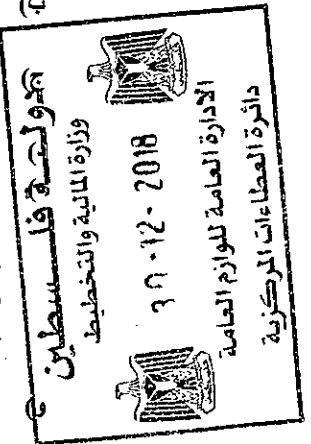 دولة فلسطين
وزارة المالية والتخطيط
30-12-2018
الادارة العامة للوازم العامة
دائرة العطاءات المركزية